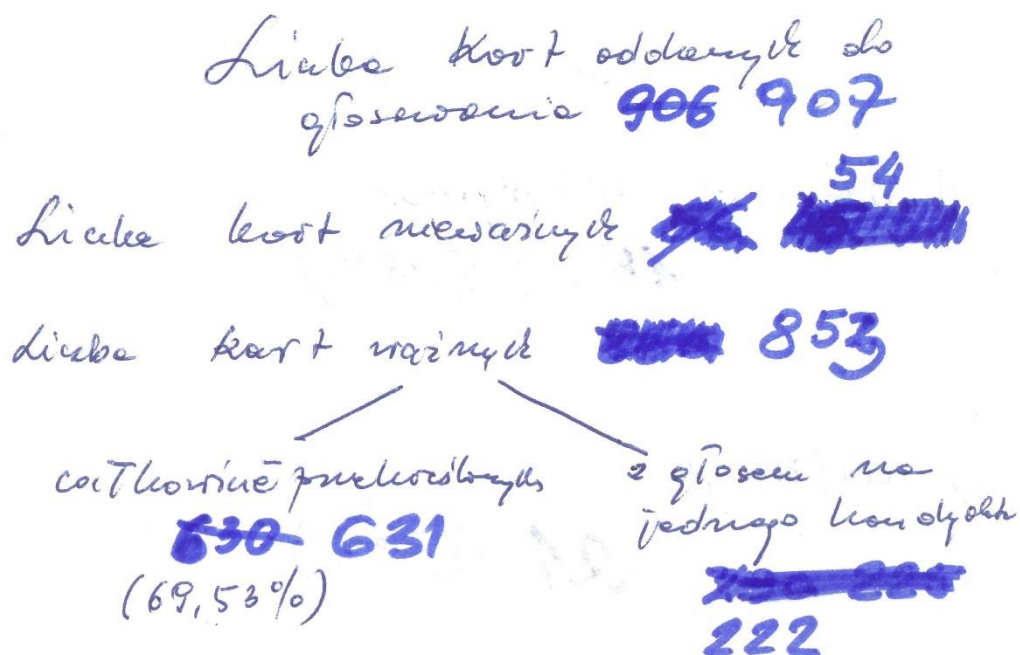 Liczba kart oddanych do
głosowania 906 907
54
Liczba kart nieważnych
Liczba kart ważnych 853
całkowicie przekreślonych
630 631
(69,53%)
z głosem na
jednego kandydata
222